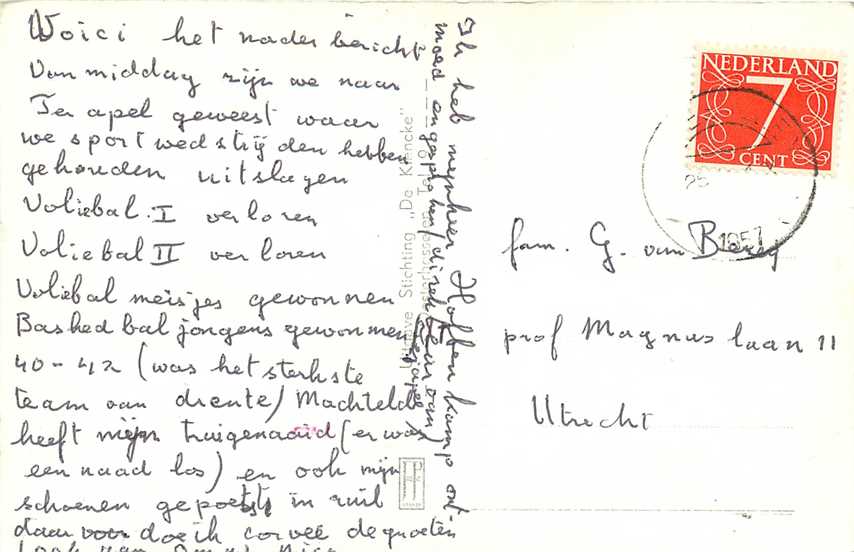 Woici het nader bericht
Van middag zijn we naar
Ter apel geweest waar
we sportwedstrijden hebben
gehouden uitslagen
Voliebal I verloren
Voliebal II verloren
Voliebal meisjes gewonnen
Basked bal jongens gewonnen
40-42 (was het sterkste
team van drente) Machteld
heeft mijn trui genaaid (er was
een naad los) en ook mijn
schoenen gepoetst in ruil
daar voor doe ik corveé de groeten
ook van
Ik heb mynheer Hoffenkamp ont-
moed en gesproken (direkteur van
ter apel)
Stichting „De Klencke"
NEDERLAND
7
CENT
1957
fam. G. van Berey
prof Magnus laan 11
Utrecht